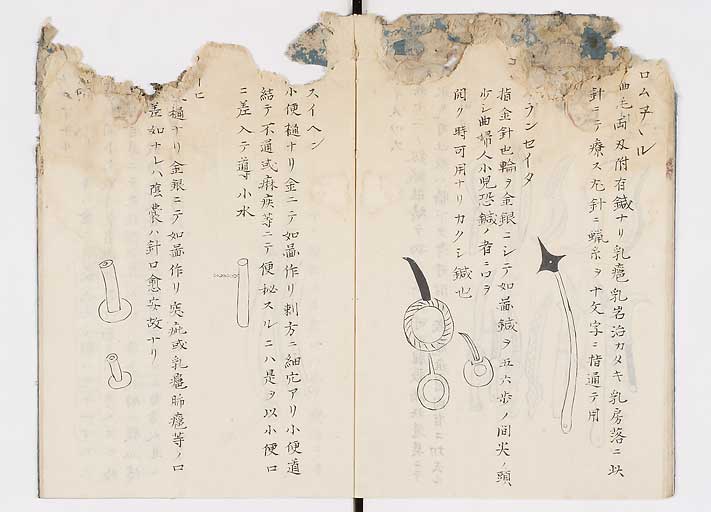 ロムヲヽル
曲毛両刃附有鍼ナリ乳癰乳岩治カタキ乳房落ニ此
針ニテ療ス尤針ニ蝋糸ヲ十文字ニ指通テ用
ランセイタ
指金針也輪ヲ金銀ニシテ如畾鍼ヲ五六歩ノ間尖ノ頭
少シ曲婦人小児恐鍼ノ者ニ口ヲ
開ク時可用ナリカクシ鍼也
スイヘン
小便樋ナリ金ニテ如畾作リ刺方ニ細穴アリ小便道
結テ不通或麻疾等ニテ便秘スルニハ是ヲ以小便口
ニ差入テ導小水
樋ナリ金銀ニテ如畾作リ突疵或乳癰肺癰等ノ口
差如ナレハ陰嚢ハ針口愈安故ナリ